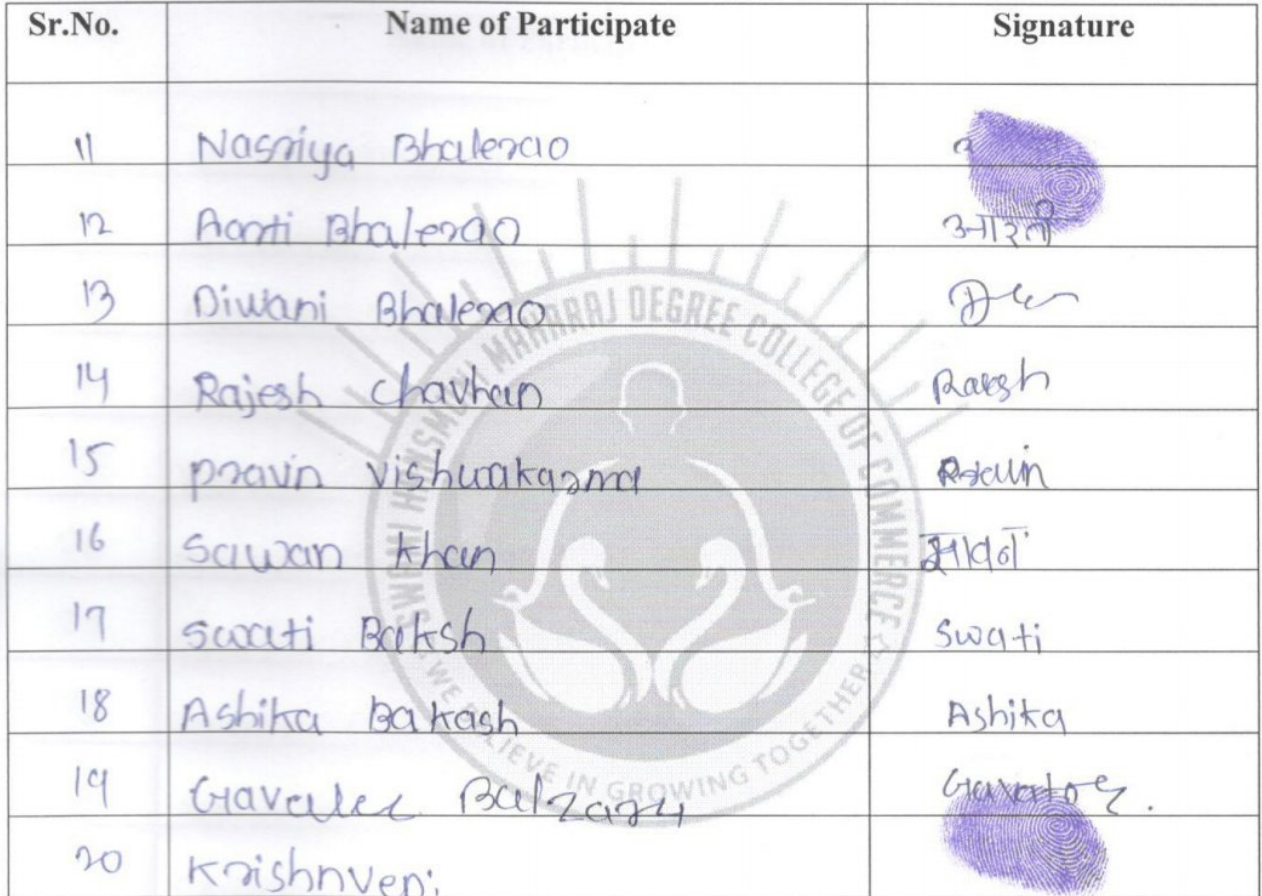 Sr.No. Name of Participate Signature
11 Nasriya Bhalerao
12 Aarti Bhalerao आरती
13 Diwani Bhalerao
14 Rajesh Chavhan Raesh
15 pravin vishwakarma Pravin
16 Sawan Khan सावन
17 Swati Baksh Swati
18 Ashika Bakash Ashika
19
20 Krishnveni
SWAMI HANSMUNI MAHARAJ DEGREE COLLEGE OF COMMERCE
WE BELIEVE IN GROWING TOGETHER